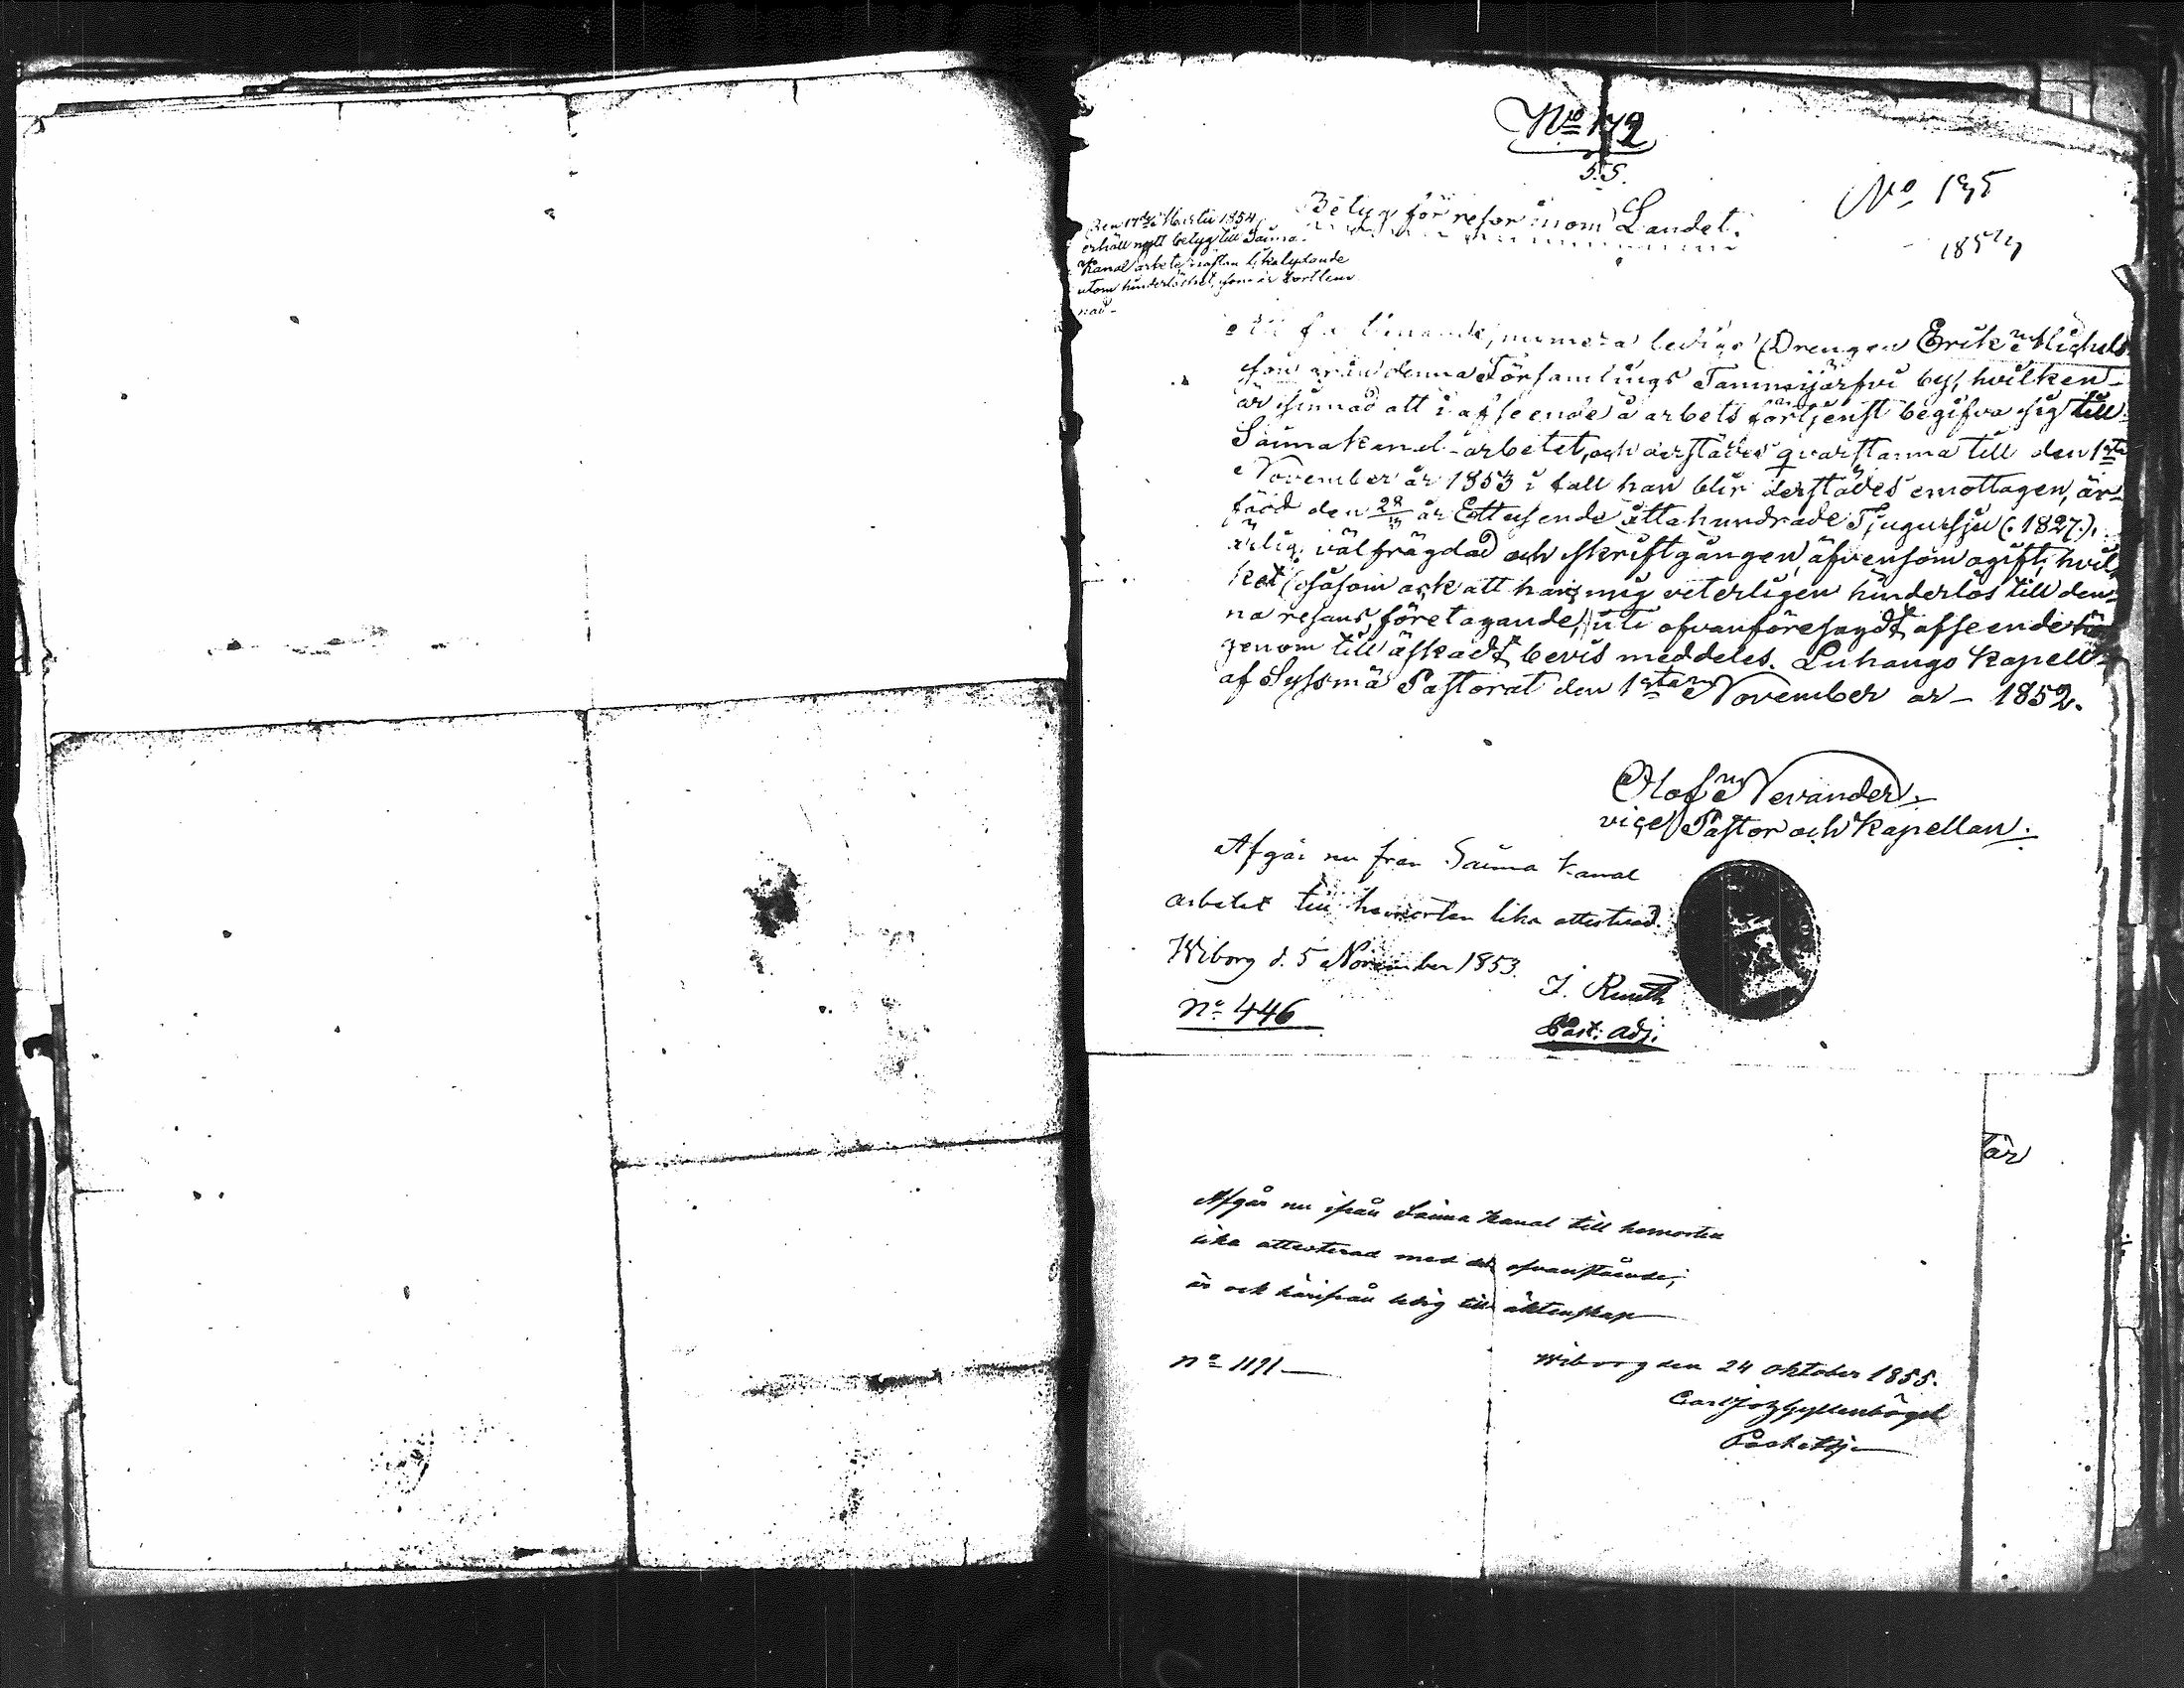 No 172
S.S.
No 195
Betyg för resor inom Landet.
Den 17de Martii 1854
erhåll nytt betyg till Saima
Kanal arbete nästan likalydande
utom hinderlöshet, som är bortlem
nad.
numera ledige Drengen Erik Michels
son från denna Församlings Tammijärfvi by, hvilken
är sinnad att i afseende å arbets förtjenst begifva sig till
Saima kanal-arbetet, och derstädes qvarstanna till den 1sta
November år 1853 i fall han blir derstädes emottagen, är
född den år Ettusende åttahundrade Tjugusju (:1827:),
ärlig, väl frägdad och skriftgången, äfvensom ogift; hvil
ket (såsom ock att han är mig veterligen hinderlös till den
na resans företagande,) uti ofvanföresagdt afseende här
genom till äskadt bevis meddeles. Luhango Kapell
af Syssmä Pastorat den 1sta November år 1852.
Olof Nevander.
vice Pastor och Kapellan.
Afgår nu från Saima Kanal
arbetet till hemorten lika attesterad.
Wiborg d. 5 November 1853.
J. Ruuth
No 446
Past: Adj.
är
Afgår nu ifrån Saima Kanal till hemorten
lika attesterad med det ofvanstående;
är ock härifrån ledig till äktenskap
No 1191
Wiborg den 24 Oktober 1855.
Carl Gyllenbögel
Past Adj